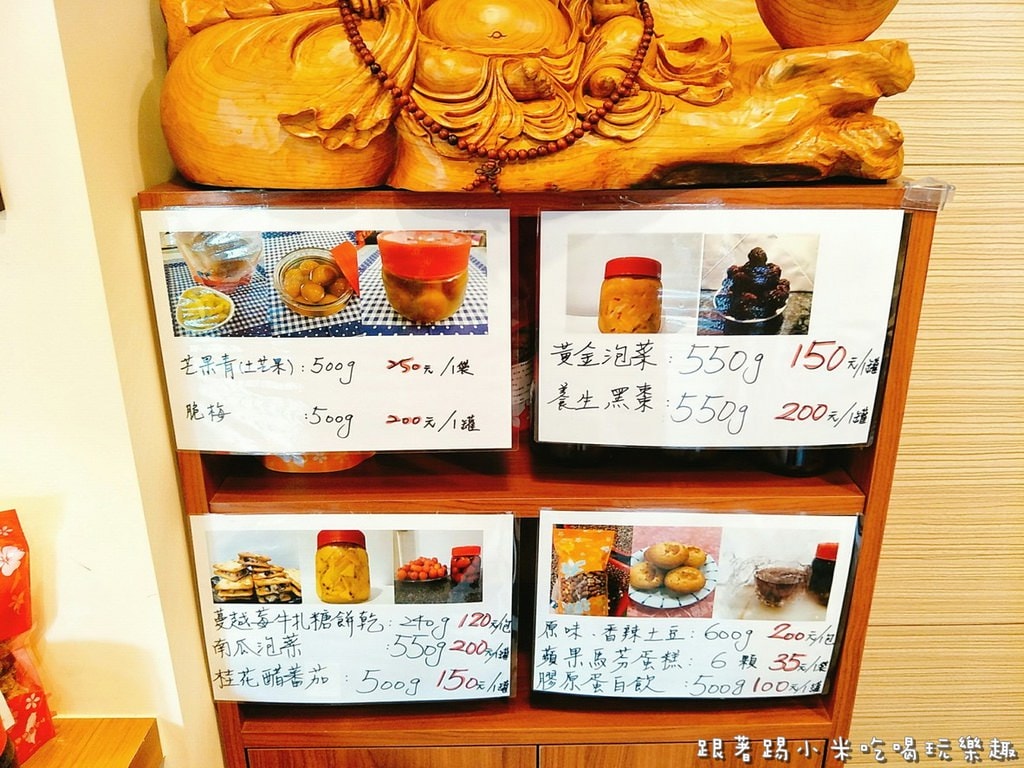 芒果青(土芒果):500g 250元/1袋
脆梅 :500g 200元/1罐
黃金泡菜:550g 150元/1罐
養生黑棗:550g 200元/1罐
蔓越莓牛扎糖餅乾:240g 120元/包
南瓜泡菜 :550g 200元/1罐
桂花醋蕃茄:500g 150元/1罐
原味、香辣土豆:600g 200元/包
蘋果馬芬蛋糕:6顆 35元/1袋
膠原蛋白飲:500g 100元/1罐
跟著踢小米吃喝玩樂趣